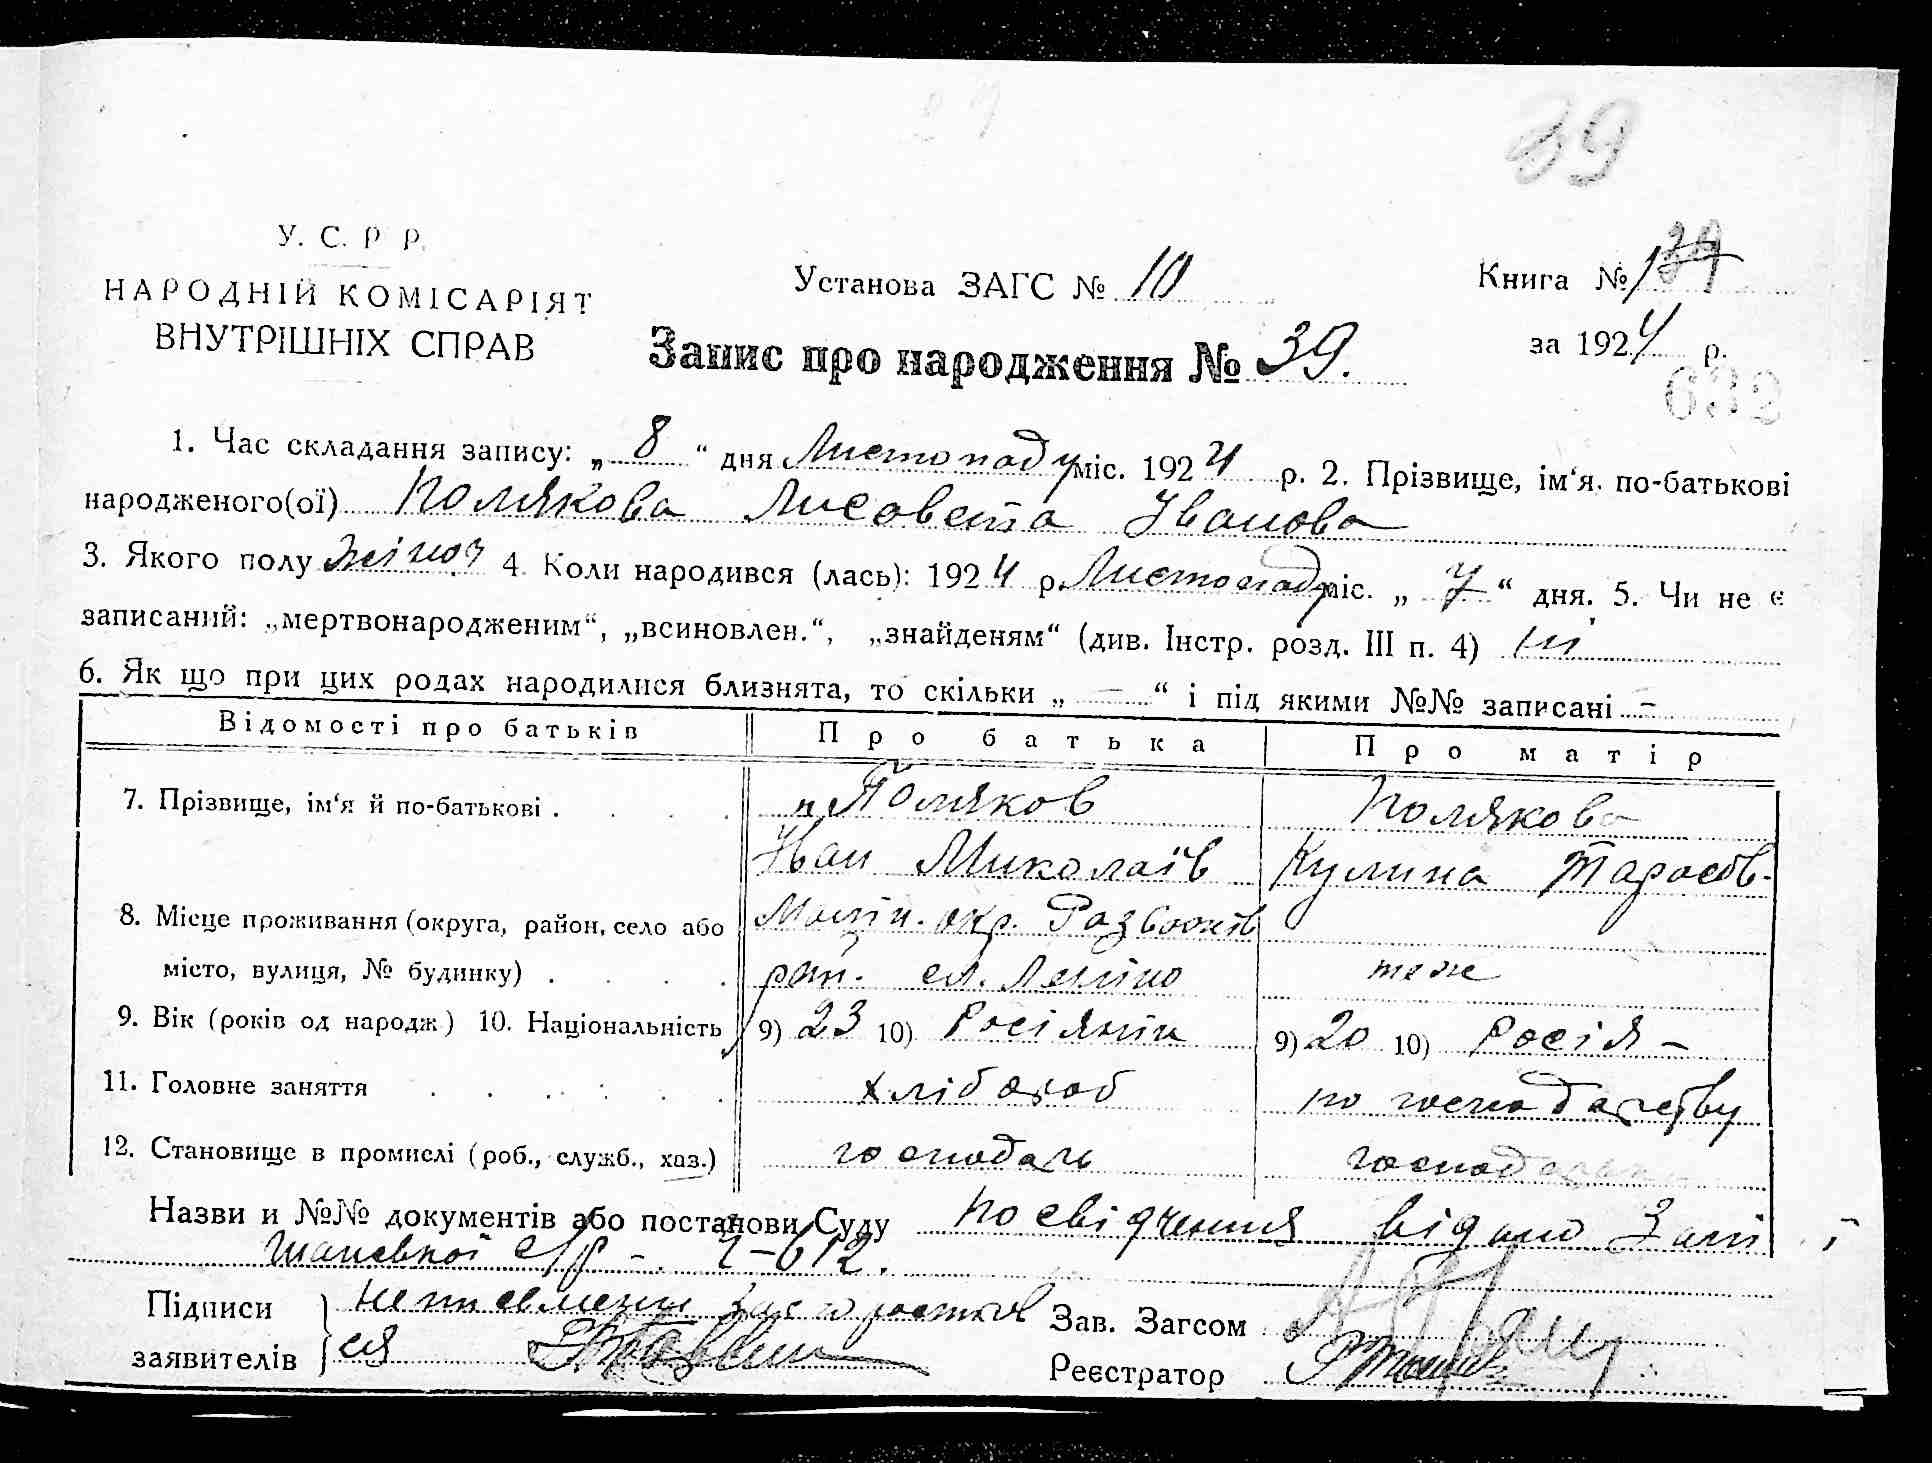 39
У. С. Р Р.
НАРОДНІЙ КОМІСАРІЯТ
ВНУТРІШНІХ СПРАВ
Установа ЗАГС № 10
Книга №
за 1924 р.
Запис про народження № 39.
632
1. Час складання запису: „ 8 “ дня Листопаду міс. 1924 р. 2. Прізвище, ім‘я, по-батькові
народженого(ої) Полякова Лисовета Іванова
3. Якого полу жіноч 4. Коли народився (лась): 1924 р. Листопаду міс. „ 7 “ дня. 5. Чи не є
записаний: „мертвонародженим“, „всиновлен.“, „знайденям“ (див. Інстр. розд. III п. 4) ні
6. Як що при цих родах народилися близнята, то скільки „ — “ і під якими №№ записані –
Відомості про батьків Про батька Про матір
7. Прізвище, ім‘я й по-батькові . Поляков Полякова
Іван Миколаїв Кулина Тарасов-
8. Місце проживання (округа, район, село або окр. Розважів
місто, вулиця, № будинку) . рай. сл. Леніно теж
9. Вік (років од народж) 10. Національність 9) 23 10) Росіянін 9) 20 10) Росія –
11. Головне заняття хлібороб по господарству
12. Становище в промислі (роб., служб., хаз.) господарь
Назви и №№ документів або постанови Суду посвідчення видано
с/р
Підписи неписьменни Зав. Загсом
заявителів ся Реєстратор